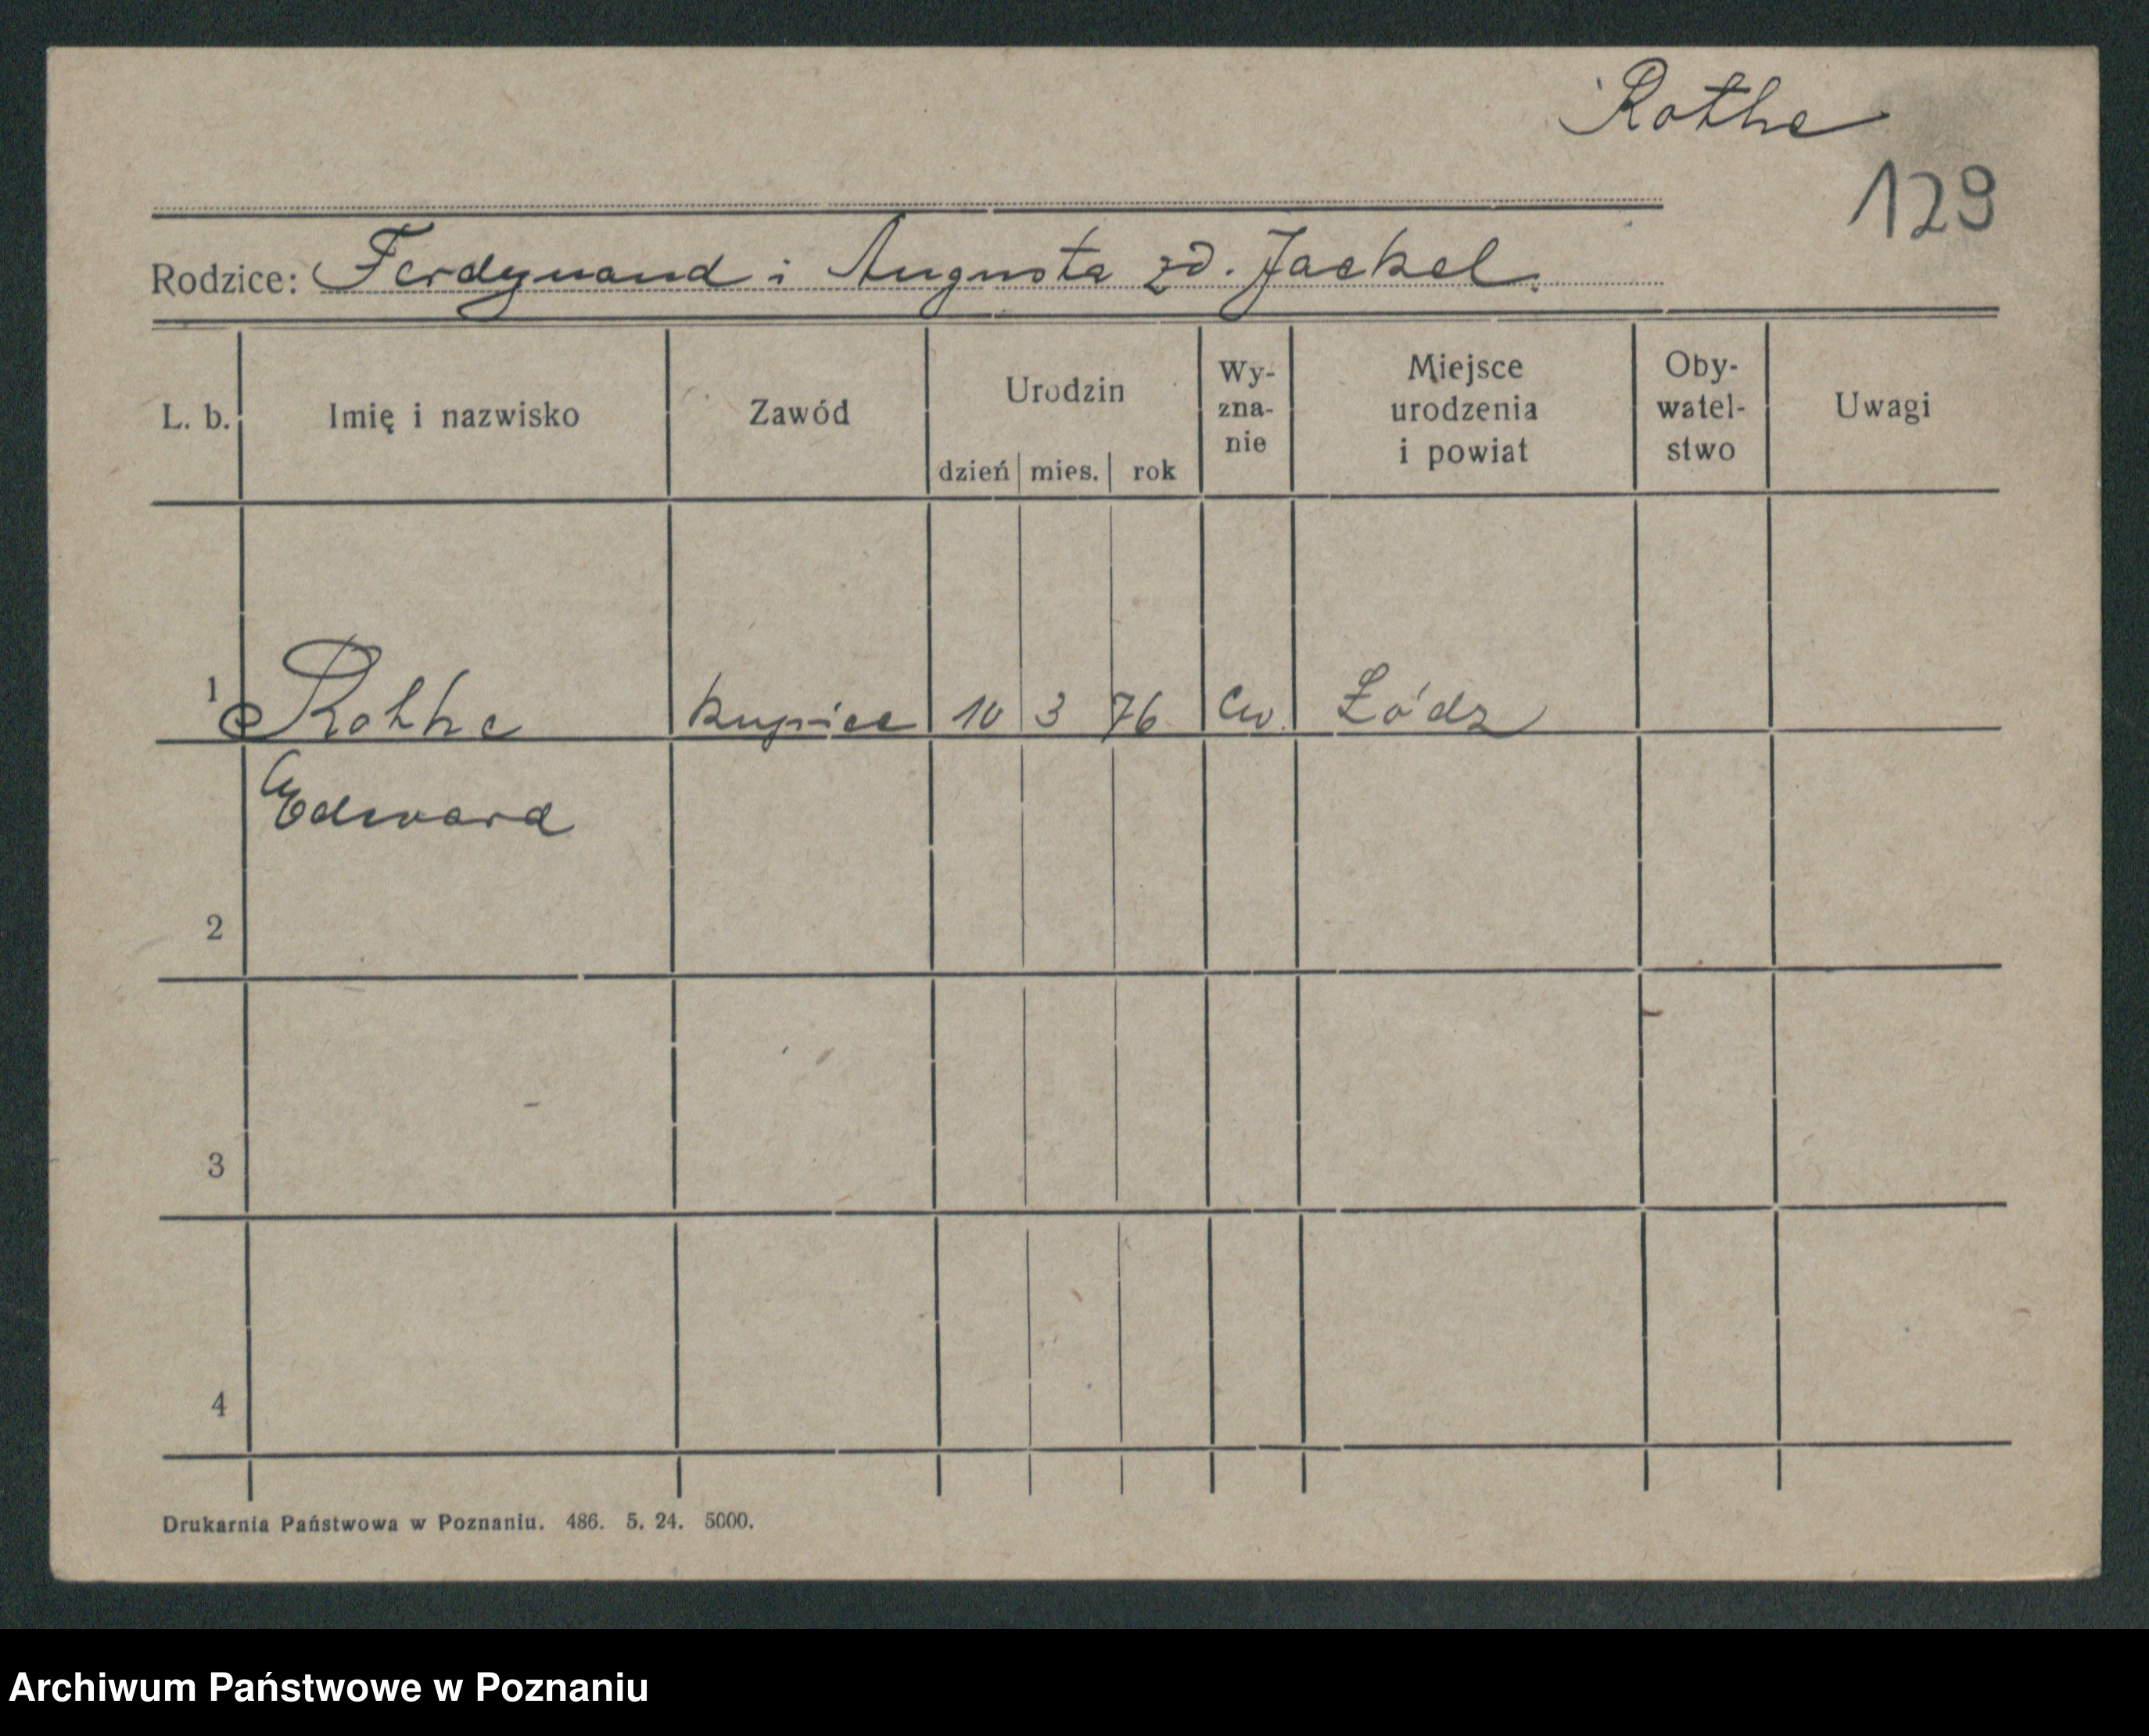 Rothe
129
Rodzice: Ferdynand i Augusta zd. Jaekel.
L. b. Imię i nazwisko Zawód Urodzin dzień mies. rok Wy-zna-nie Miejsce urodzenia i powiat Oby-watel-stwo Uwagi
1 Rothe kupiec 10 3 76 ew. Łódz
Edward
2
3
4
Drukarnia Państwowa w Poznaniu. 486. 5. 24. 5000.
Archiwum Państwowe w Poznaniu